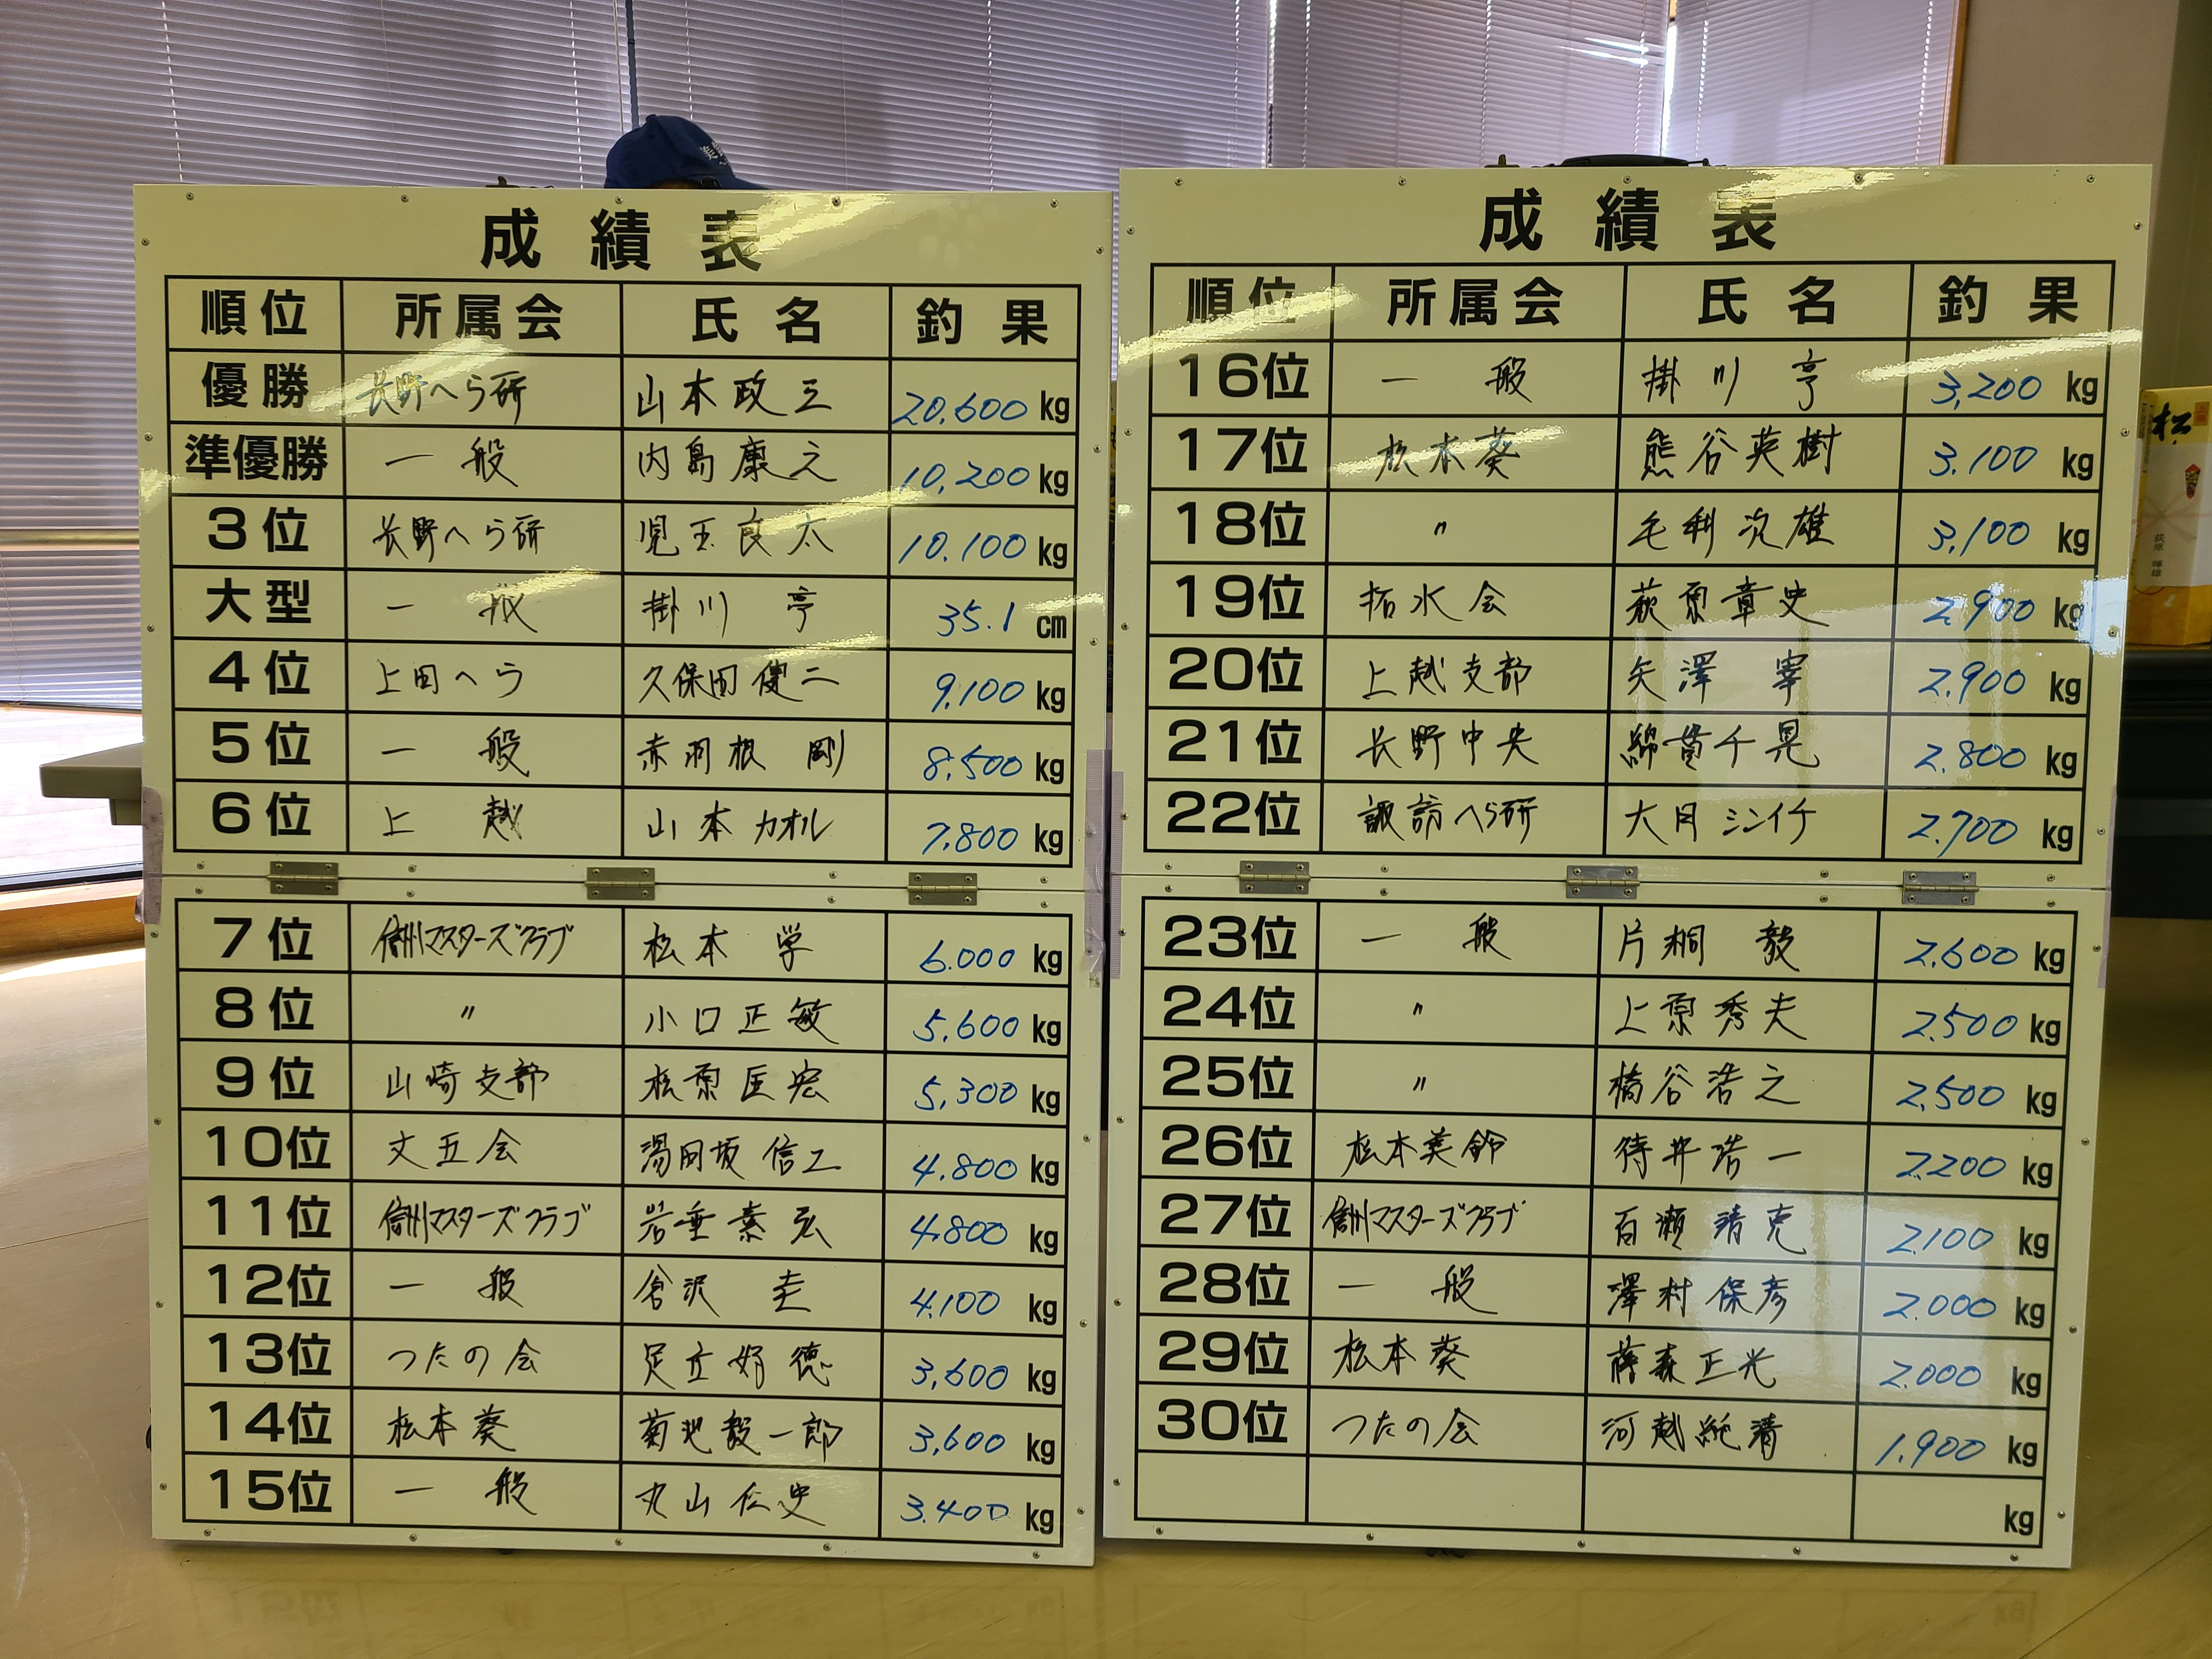 成績表
順位 所属会 氏名 釣果
優勝 長野へら研 山本政三 20,600 kg
準優勝 一般 内島康之 10,200 kg
3位 長野へら研 児玉良太 10.100 kg
大型 一般 掛川亨 35.1 cm
4位 上田へら 久保田健二 9.100 kg
5位 一般 赤羽根剛 8.500 kg
6位 上越 山本カオル 7.800 kg
7位 信州マスターズクラブ 松本学 6.000 kg
8位 〃 小口正敏 5,600 kg
9位 山崎支部 松原匡宏 5,300 kg
10位 文五会 湯田坂信二 4.800 kg
11位 信州マスターズクラブ 岩垂素弘 4.800 kg
12位 一般 倉沢圭 4.100 kg
13位 つたの会 足立好徳 3,600 kg
14位 松本葵 菊池毅一郎 3,600 kg
15位 一般 丸山仁史 3.400 kg
成績表
順位 所属会 氏名 釣果
16位 一般 掛川亨 3,200 kg
17位 松本葵 熊谷英樹 3.100 kg
18位 〃 毛利次雄 3,100 kg
19位 拓水会 萩原章史 2.900 kg
20位 上越支部 矢澤宰 2.900 kg
21位 長野中央 綿貫千晃 2.800 kg
22位 諏訪へら研 大月シンイチ 2.700 kg
23位 一般 片桐毅 2.600 kg
24位 〃 上原秀夫 2.500 kg
25位 〃 橋谷浩之 2.500 kg
26位 松本美鈴 待井浩一 2.200 kg
27位 信州マスターズクラブ 百瀬清克 2.100 kg
28位 一般 澤村保彦 2.000 kg
29位 松本葵 藤森正光 2.000 kg
30位 つたの会 河越純清 1.900 kg
kg
松